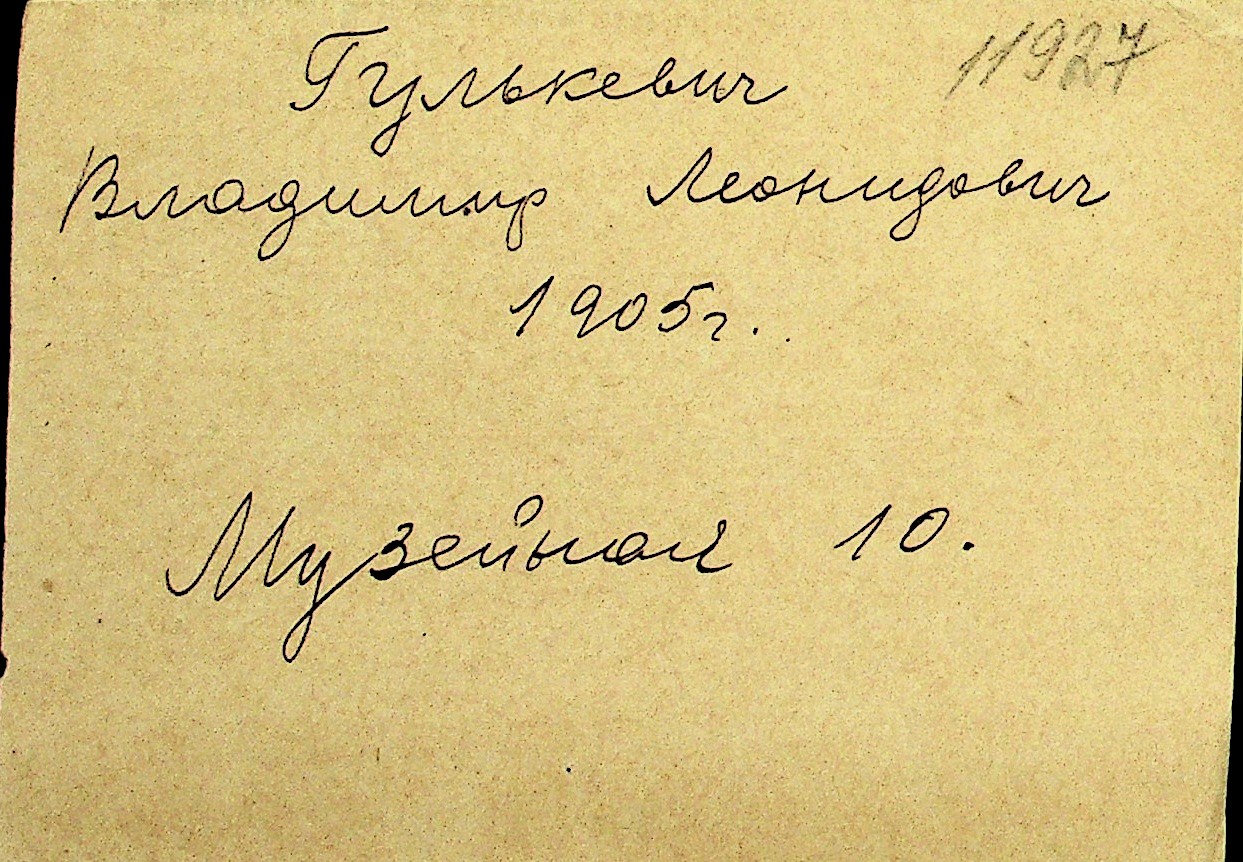 11927
Гулькевич
Владимир Леонидович
1905г.
Музейная 10.